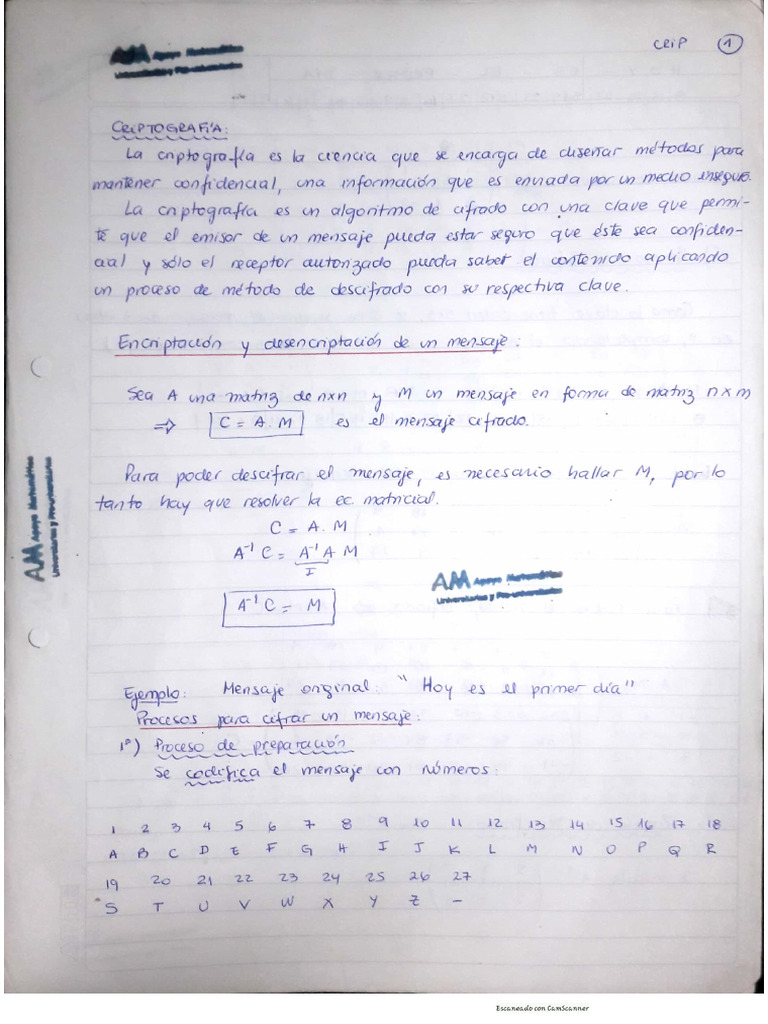 CRIP 1
AMA Apoyo Matemático
Universitarios y Pre-universitarios
CRIPTOGRAFÍA:
La criptografía es la ciencia que se encarga de diseñar métodos para
mantener confidencial, una información que es enviada por un medio inseguro.
La criptografía es un algoritmo de cifrado con una clave que permi-
te que el emisor de un mensaje pueda estar seguro que éste sea confiden-
cial y sólo el receptor autorizado pueda saber el contenido aplicando
un proceso de método de descifrado con su respectiva clave.
Encriptación y desencriptación de un mensaje:
Sea A una matriz de n×n y M un mensaje en forma de matriz n×m
⇒ C = A.M es el mensaje cifrado.
Para poder descifrar el mensaje, es necesario hallar M, por lo
tanto hay que resolver la ec. matricial.
C = A.M
A⁻¹ C = A⁻¹ A M
I
A⁻¹ C = M
AM Apoyo Matemático
Universitarios y Pre-universitarios
AM Apoyo Matemático
Universitarios y Pre-universitarios
Ejemplo: Mensaje original: "Hoy es el primer día"
Procesos para cifrar un mensaje:
1º) Proceso de preparación
Se codifica el mensaje con números:
1 2 3 4 5 6 7 8 9 10 11 12 13 14 15 16 17 18
A B C D E F G H I J K L M N O P Q R
19 20 21 22 23 24 25 26 27
S T U V W X Y Z –
Escaneado con CamScanner